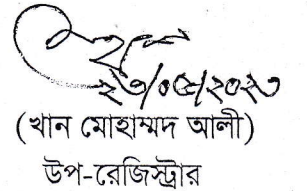 ২৩/০৫/২০২৩
(খান মোহাম্মদ আলী)
উপ-রেজিস্ট্রার